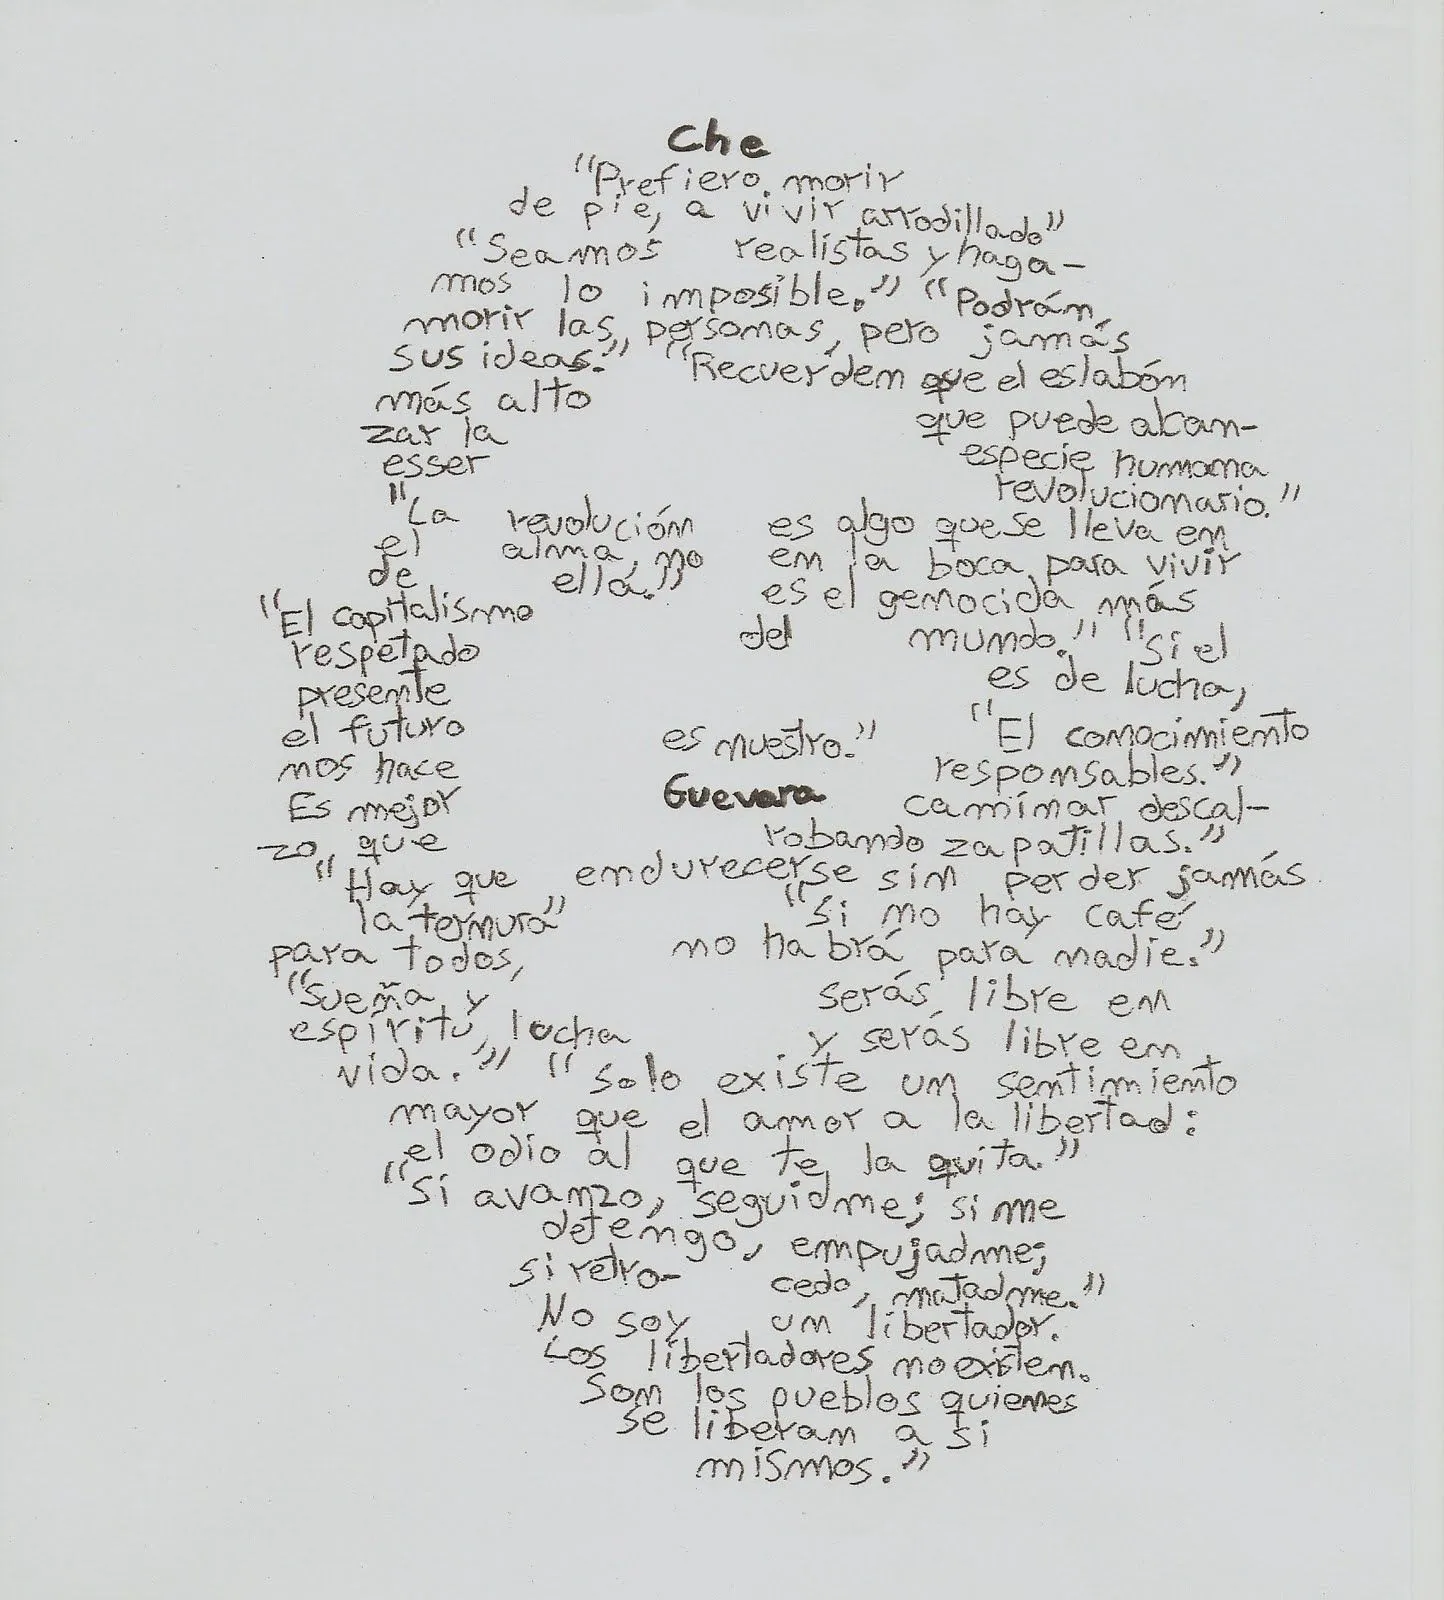 Che
"Prefiero morir
de pie, a vivir arrodillado"
"Seamos realistas y haga-
mos lo imposible." "Podrán
morir las personas, pero jamás
sus ideas." "Recuerden que el eslabón
más alto que puede alcan-
zar la especie humana
esser revolucionario."
"La revolución es algo que se lleva en
el alma, no en la boca para vivir
de ella."
"El capitalismo es el genocida más
respetado del mundo." "Si el
presente es de lucha,
el futuro es nuestro." "El conocimiento
nos hace responsables."
Es mejor Guevara caminar descal-
zo, que robando zapatillas."
"Hay que endurecerse sin perder jamás
la ternura" "Si no hay café
para todos, no habrá para nadie."
"Sueña y serás libre en
espíritu, lucha y serás libre en
vida." "Solo existe un sentimiento
mayor que el amor a la libertad:
el odio al que te la quita."
"Si avanzo, seguidme; si me
detengo, empujadme;
si retro- cedo, matadme."
No soy un libertador.
Los libertadores no existen.
Son los pueblos quienes
se liberan a si
mismos."